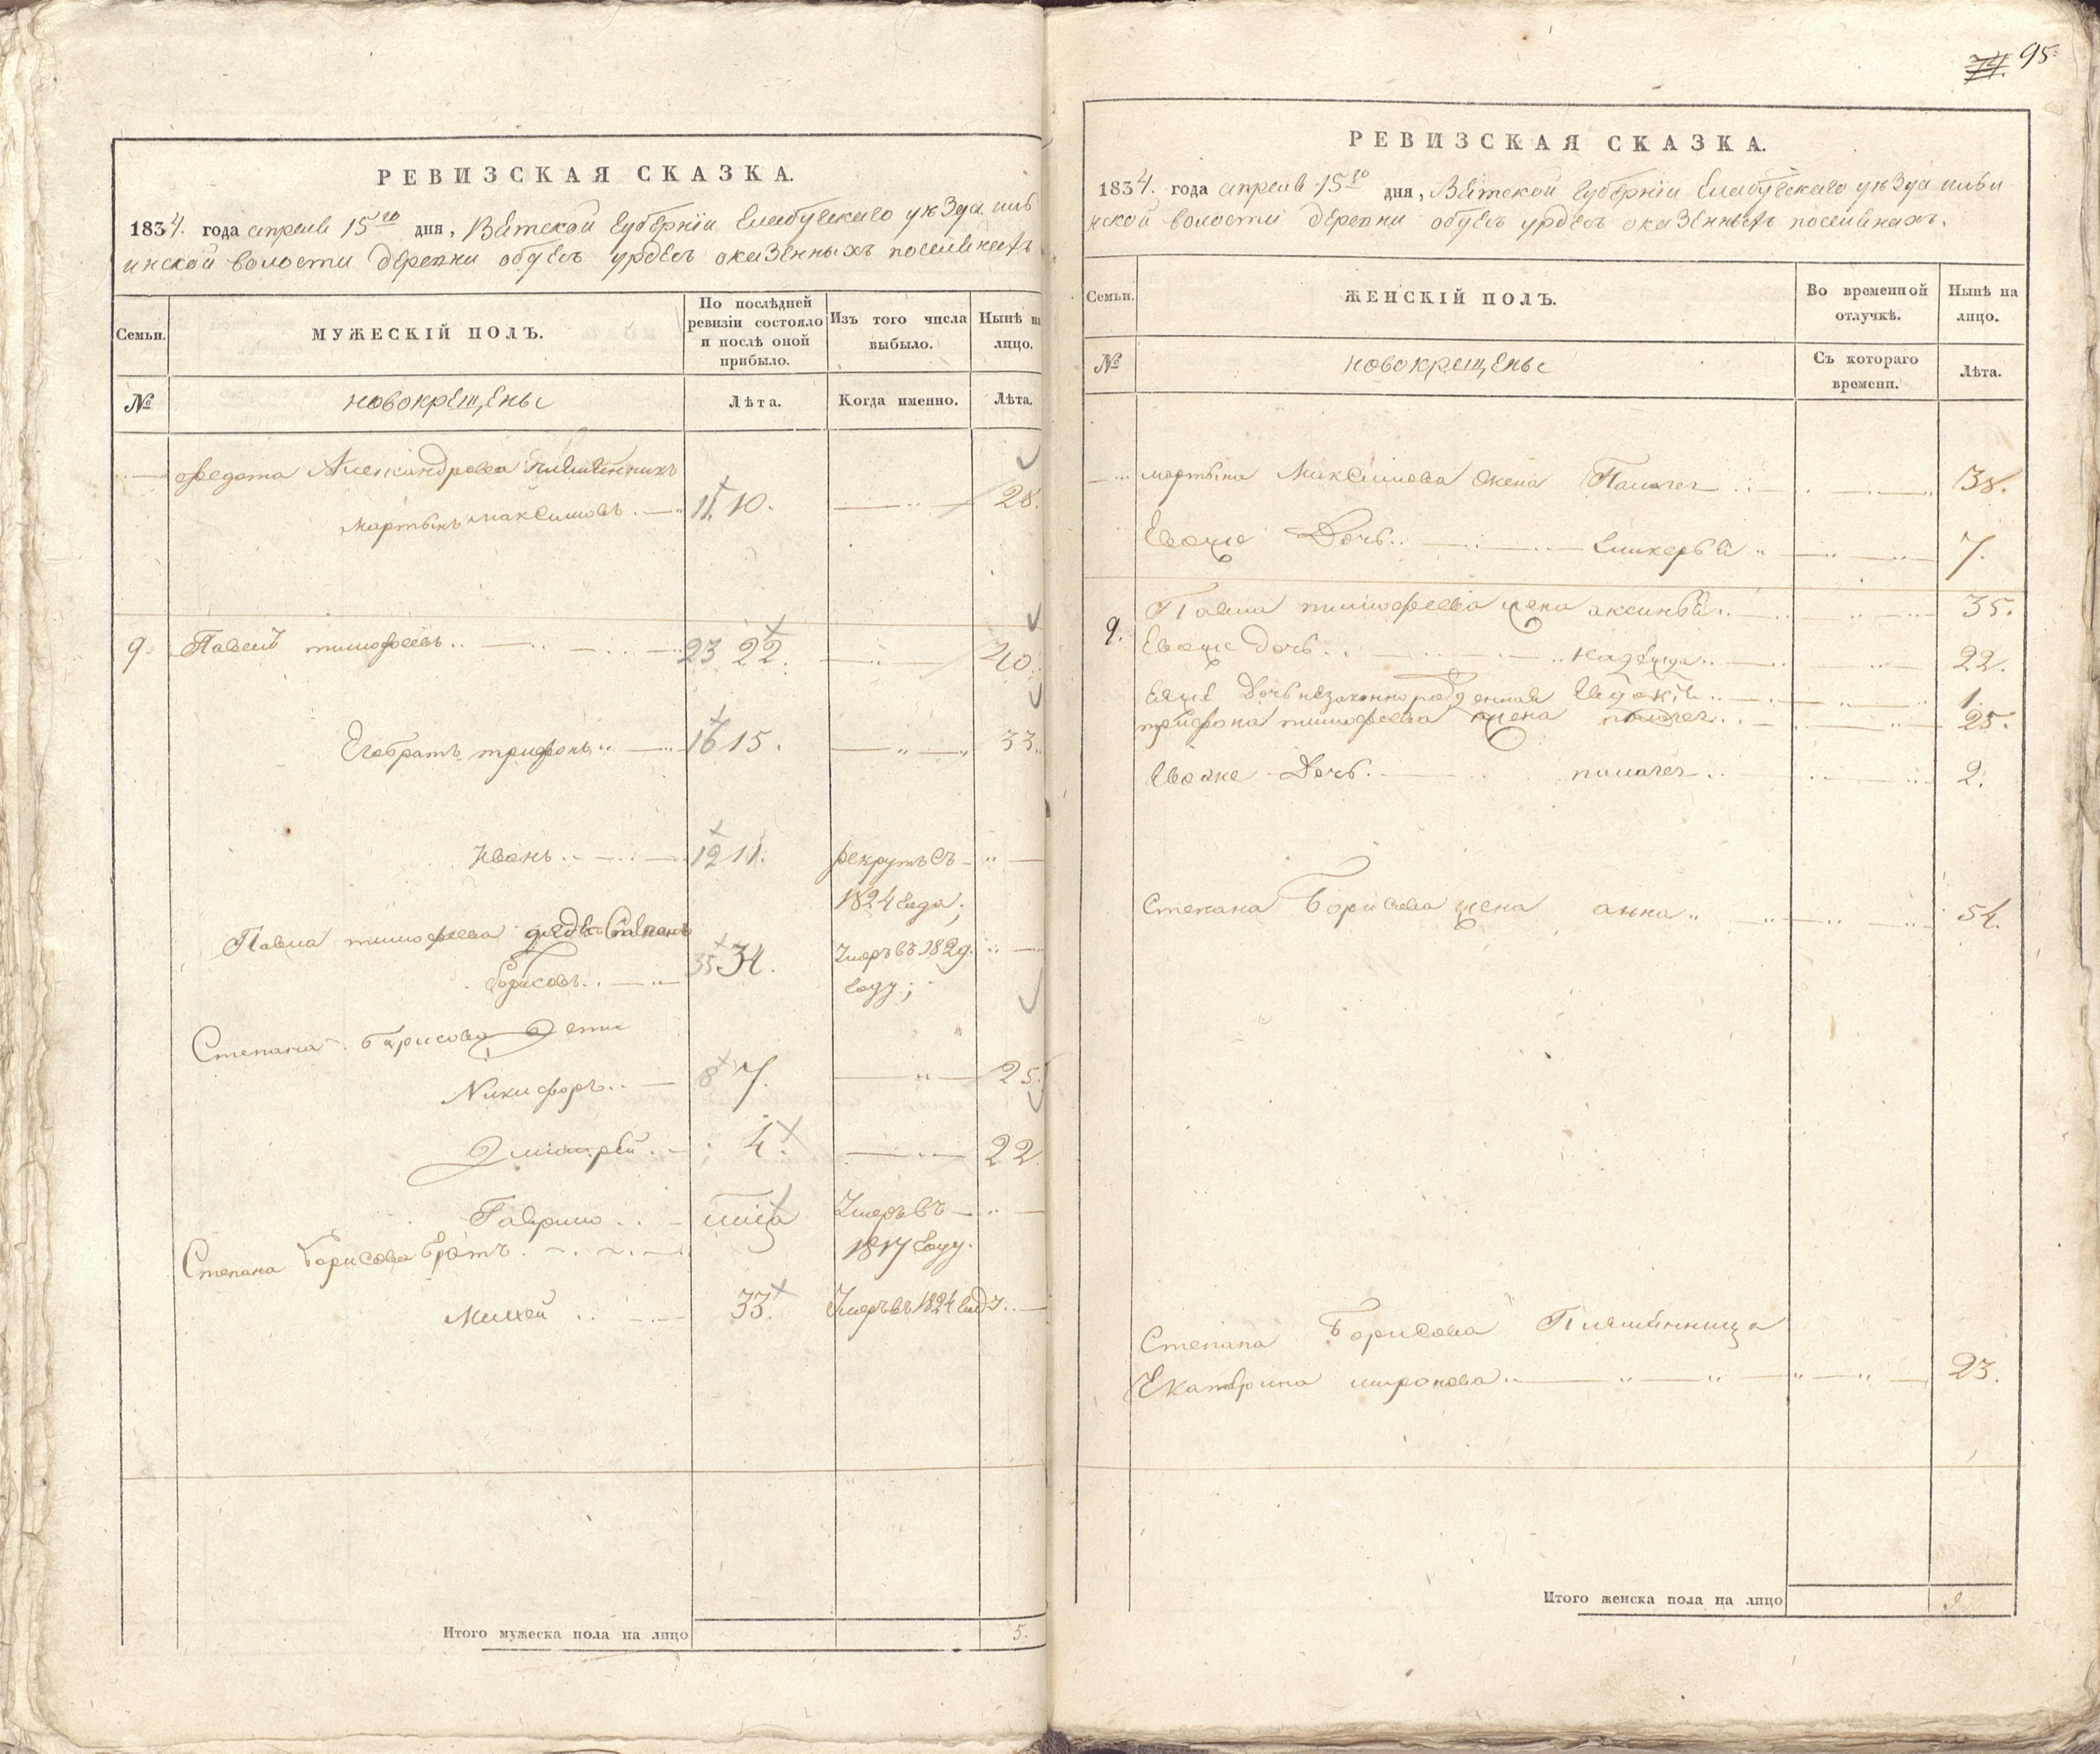 РЕВИЗСКАЯ СКАЗКА.
1834. года апреля 15го дня, Вятской Губернїи Елабугскаго уѣзда
инской волости деревни обуесъ урдесъ оказенныхъ поселянехъ
Семьи. МУЖЕСКІЙ ПОЛЪ. По послѣдней ревизіи состояло и послѣ оной прибыло. Изъ того числа выбыло. Нынѣ на лицо.
№ новокрещены Лѣта. Когда именно. Лѣта.
Федота Александрова племянникъ
мартынъ максимовъ 11. 10. 28.
9. Павелъ тимофеевъ 23 22. 40.
Его братъ трифонъ 16 15. 33.
Иванъ 12 11. рекрутъ съ
1824 года;
Павла тимофеева дядя Степанъ
борисовъ 35 34. Умеръ въ 1829.
году;
Степана борисова Дети
Никифоръ 8 7. 25.
Дмитрей 4. 22.
Гаврило Умеръ въ
1817 году.
Степана Борисова братъ
Михей 33. Умеръ въ 1824 году
Итого мужеска пола на лицо 5.
74. 95
РЕВИЗСКАЯ СКАЗКА.
1834. года апреля 15го дня, Вятской Губернїи Елабугскаго уѣзда
нской волости деревни обуесъ урдесъ оказенныхъ поселянахъ.
Семьи. ЖЕНСКІЙ ПОЛЪ. Во временной отлучкѣ. Нынѣ на лицо.
№ новокрещены Съ котораго времени. Лѣта.
мартына Максимова жена Палагея 38.
Евоже Дочь Гликерья 7.
9. Павла тимофеева жена аксинья 35.
Евоже дочь надежда 22.
Еяже Дочь незаконнорожденная Евдокія 1.
трифона тимофеева жена палагея 25.
Евоже Дочь палагея 2.
Степана Борисова жена анна 54.
Степана Борисова Племянница
Екатерина миронова 23.
Итого женска пола на лицо 9